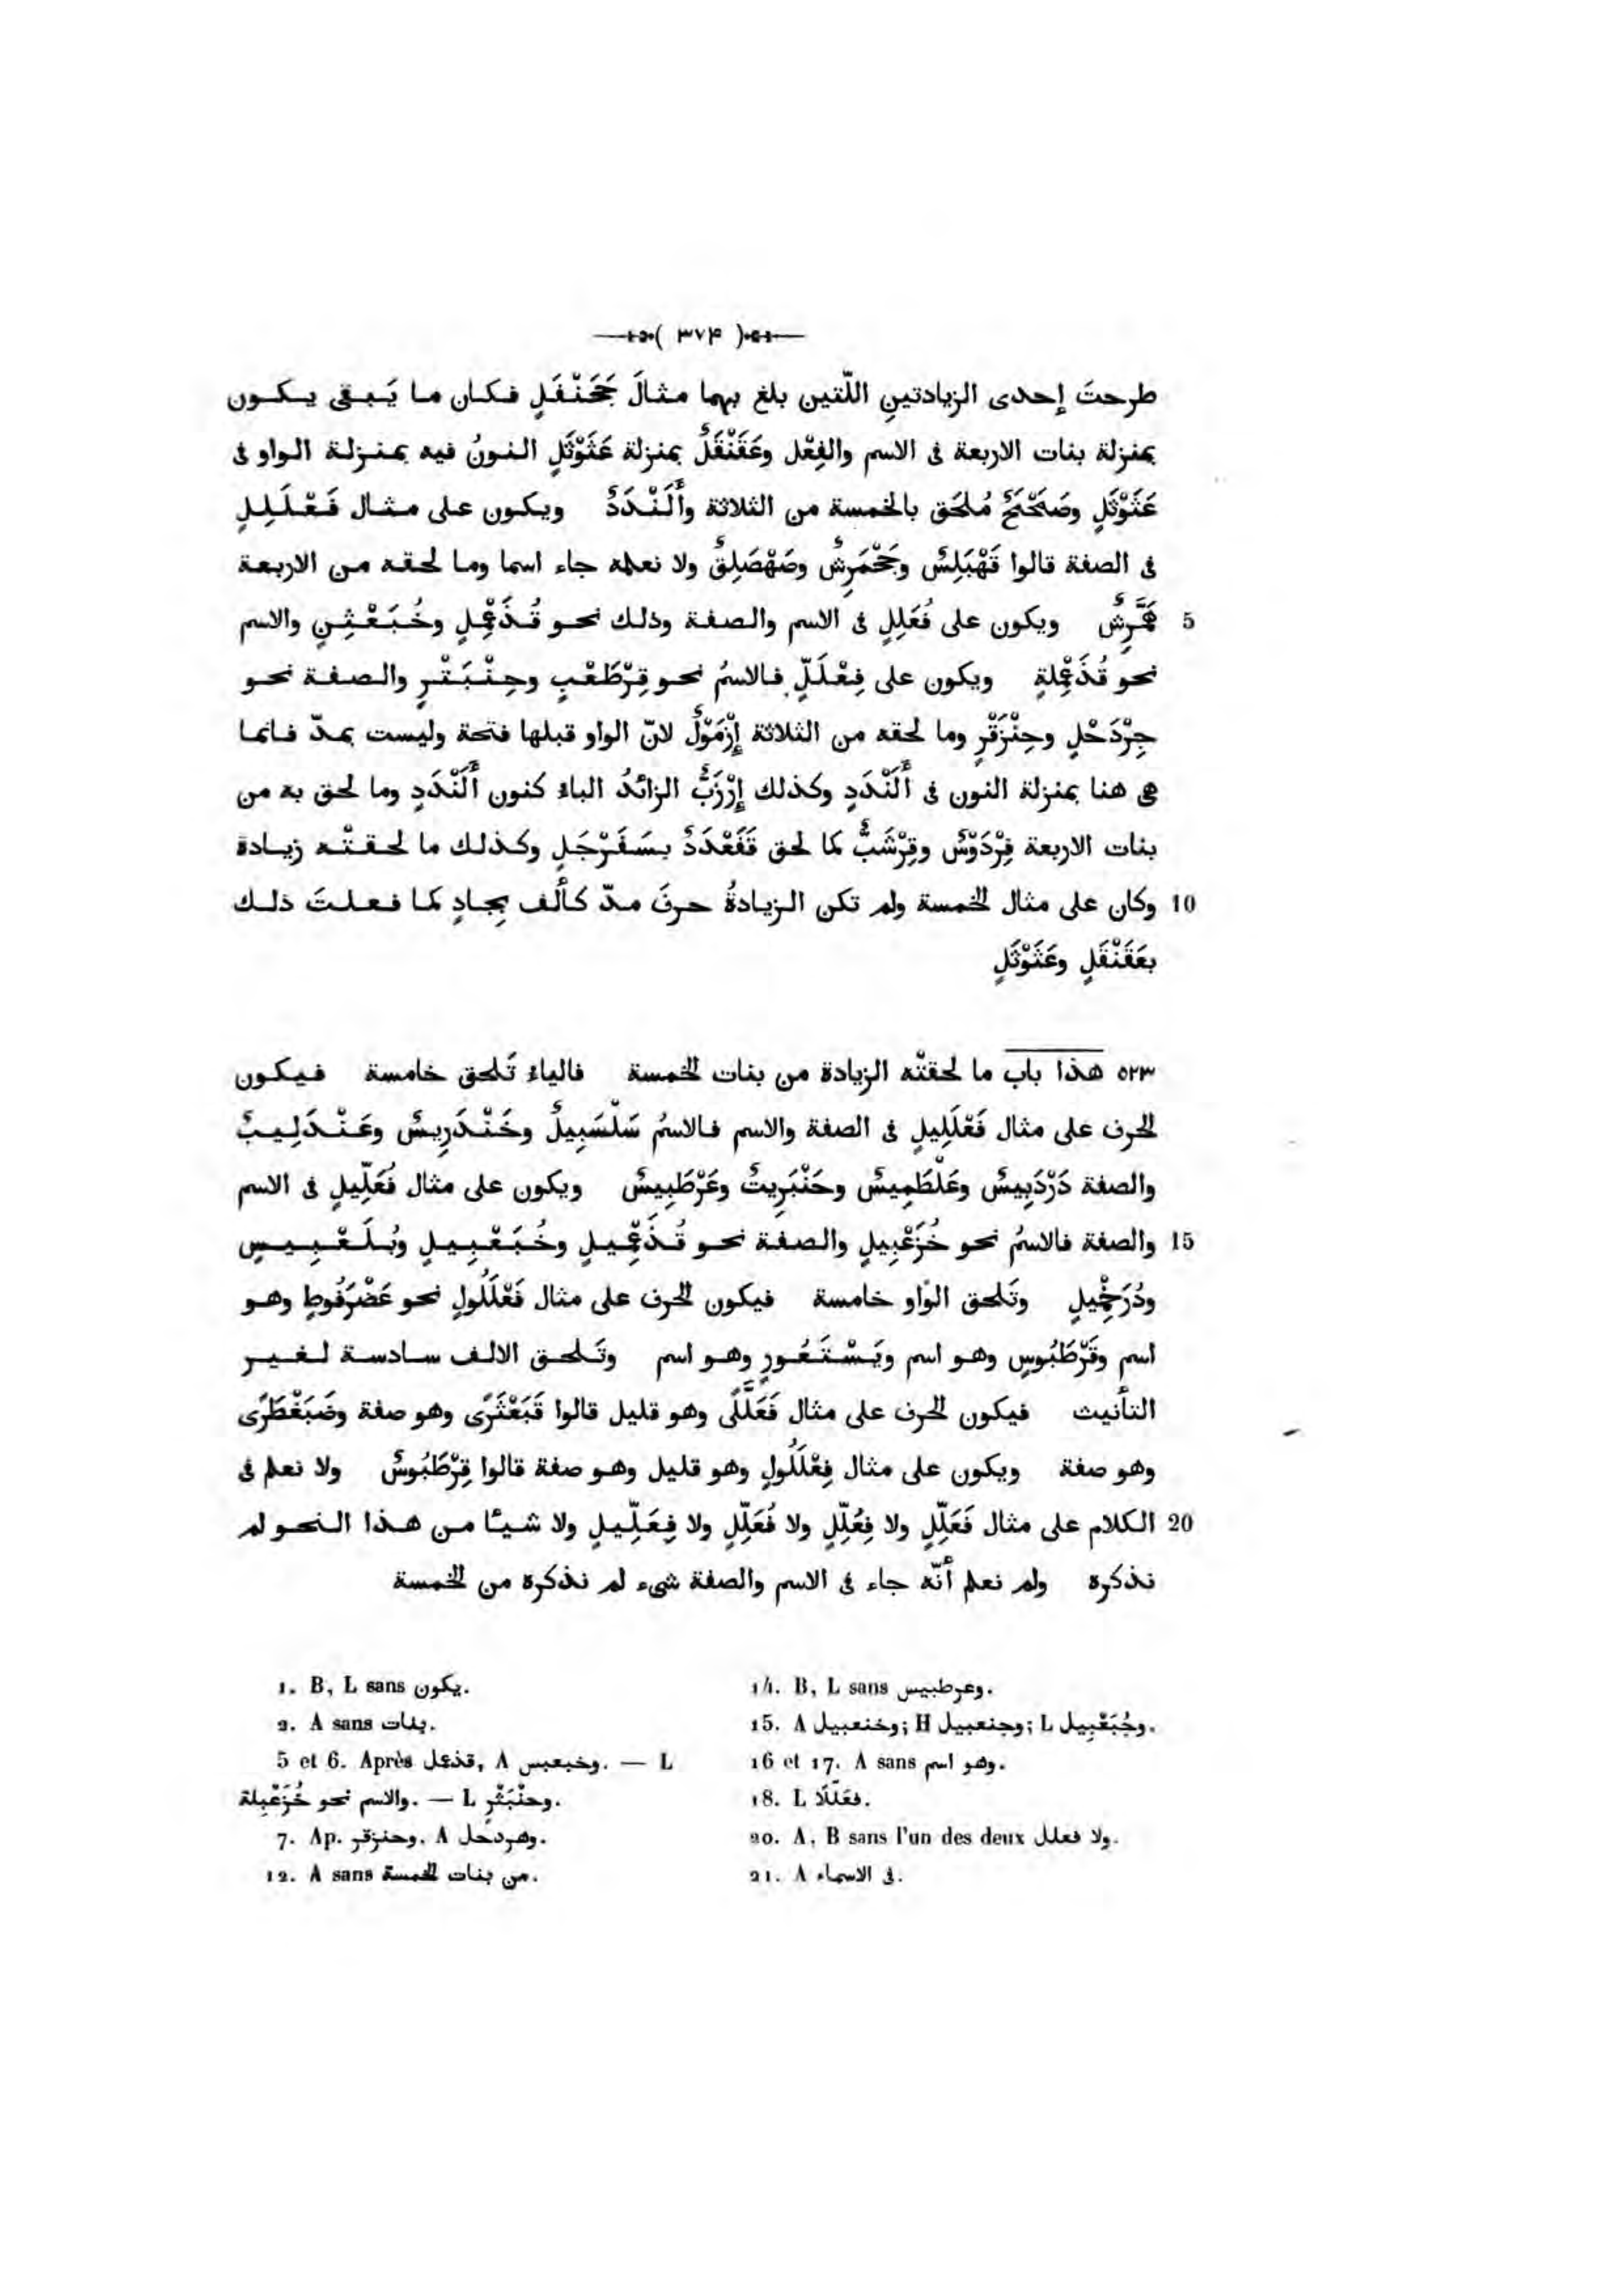 ( ٣٧۴ )
طرحتَ إحدى الزيادتينِ اللّتين بلغ بهما مثالَ جَحَنْفَلٍ فكان ما يَبقى يكون
بمنزلة بنات الاربعة فى الاسم والفِعْل وعَقَنْقَلٌ بمنزلة عَثَوْثَلٍ النونُ فيه بمنزلة الواو فى
عَثَوْثَلٍ وصَمَحْمَحٌ مُلحَق بالخمسة من الثلاثة وأَلَنْدَدٌ ويكون على مثال فَعْلَلِلٍ
فى الصفة قالوا قَهْبَلِسٌ وجَحْمَرِشٌ وصَهْصَلِقٌ ولا نعلمه جاء اسما وما لحقه من الاربعة
5 هَمَّرِشٌ ويكون على فُعَلِلٍ فى الاسم والصفة وذلك نحو قُذَعْمِلٍ وخُبَعْثِنٍ والاسم
نحو قُذَعْمِلةٍ ويكون على فِعْلَلٍّ فالاسمُ نحو قِرْطَعْبٍ وحِنْبَتْرٍ والصفة نحو
جِرْدَحْلٍ وحِنْزَقْرٍ وما لحقه من الثلاثة إِزْمَوْلٌ لانّ الواو قبلها فتحة وليست بمدّ فانما
هى هنا بمنزلة النون فى أَلَنْدَدٍ وكذلك إِرْزَبٌّ الزائدُ الباءُ كنون أَلَنْدَدٍ وما لحق به من
بنات الاربعة فِرْدَوْسٌ وقِرْشَبٌّ كما لحق قَفَعْدَدٌ بسَفَرْجَلٍ وكذلك ما لحقتْه زيادة
10 وكان على مثال الخمسة ولم تكن الزيادةُ حرفَ مدّ كألف بِجادٍ كما فعلتَ ذلك
بعَقَنْقَلٍ وعَثَوْثَلٍ
٥٢٣ هذا باب ما لحقتْه الزيادة من بنات الخمسة فالياءُ تَلحق خامسة فيكون
الحرف على مثال فَعْلَلِيلٍ فى الصفة والاسم فالاسمُ سَلْسَبِيلٌ وخَنْدَرِيسٌ وعَنْدَلِيبٌ
والصفة دَرْدَبِيسٌ وعَلْطَمِيسٌ وحَنْبَرِيتٌ وعَرْطَبِيسٌ ويكون على مثال فُعَلِّيلٍ فى الاسم
15 والصفة فالاسمُ نحو خُزَعْبِيلٍ والصفة نحو قُذَعْمِيلٍ وخُبَعْبِيلٍ وبُلَعْبِيسٍ
ودُرَخْمِيلٍ وتَلحق الواو خامسة فيكون الحرف على مثال فَعْلَلُولٍ نحو عَضْرَفُوطٍ وهو
اسم وقَرْطَبُوسٍ وهو اسم ويَسْتَعُورٍ وهو اسم وتَلحق الالف سادسة لغير
التأنيث فيكون الحرف على مثال فَعَلَّلًى وهو قليل قالوا قَبَعْثَرًى وهو صفة وضَبَغْطَرًى
وهو صفة ويكون على مثال فِعْلَلُولٍ وهو قليل وهو صفة قالوا قِرْطَبُوسٌ ولا نعلم فى
20 الكلام على مثال فَعَلِّلٍ ولا فِعُلِّلٍ ولا فُعَلِّلٍ ولا فِعَلِّيلٍ ولا شيئًا من هذا النحو لم
نذكره ولم نعلم أنّه جاء فى الاسم والصفة شىء لم نذكره من الخمسة
1. B, L sans يكون.
2. A sans بنات.
5 et 6. Après قذعمل, A وخبعبس. — L
والاسم نحو خُزَعْبِلة. — L وحِنْبَثْرٍ.
7. Ap. وحنزقر, A وهردحل.
12. A sans من بنات الخمسة.
14. B, L sans وعرطبيس.
15. A وخنعبيل; H وجنعبيل; L وجُبَعْبِيل.
16 et 17. A sans وهو اسم.
18. L فعَلّلًا.
20. A, B sans l'un des deux ولا فعلل.
21. A فى الاسماء.